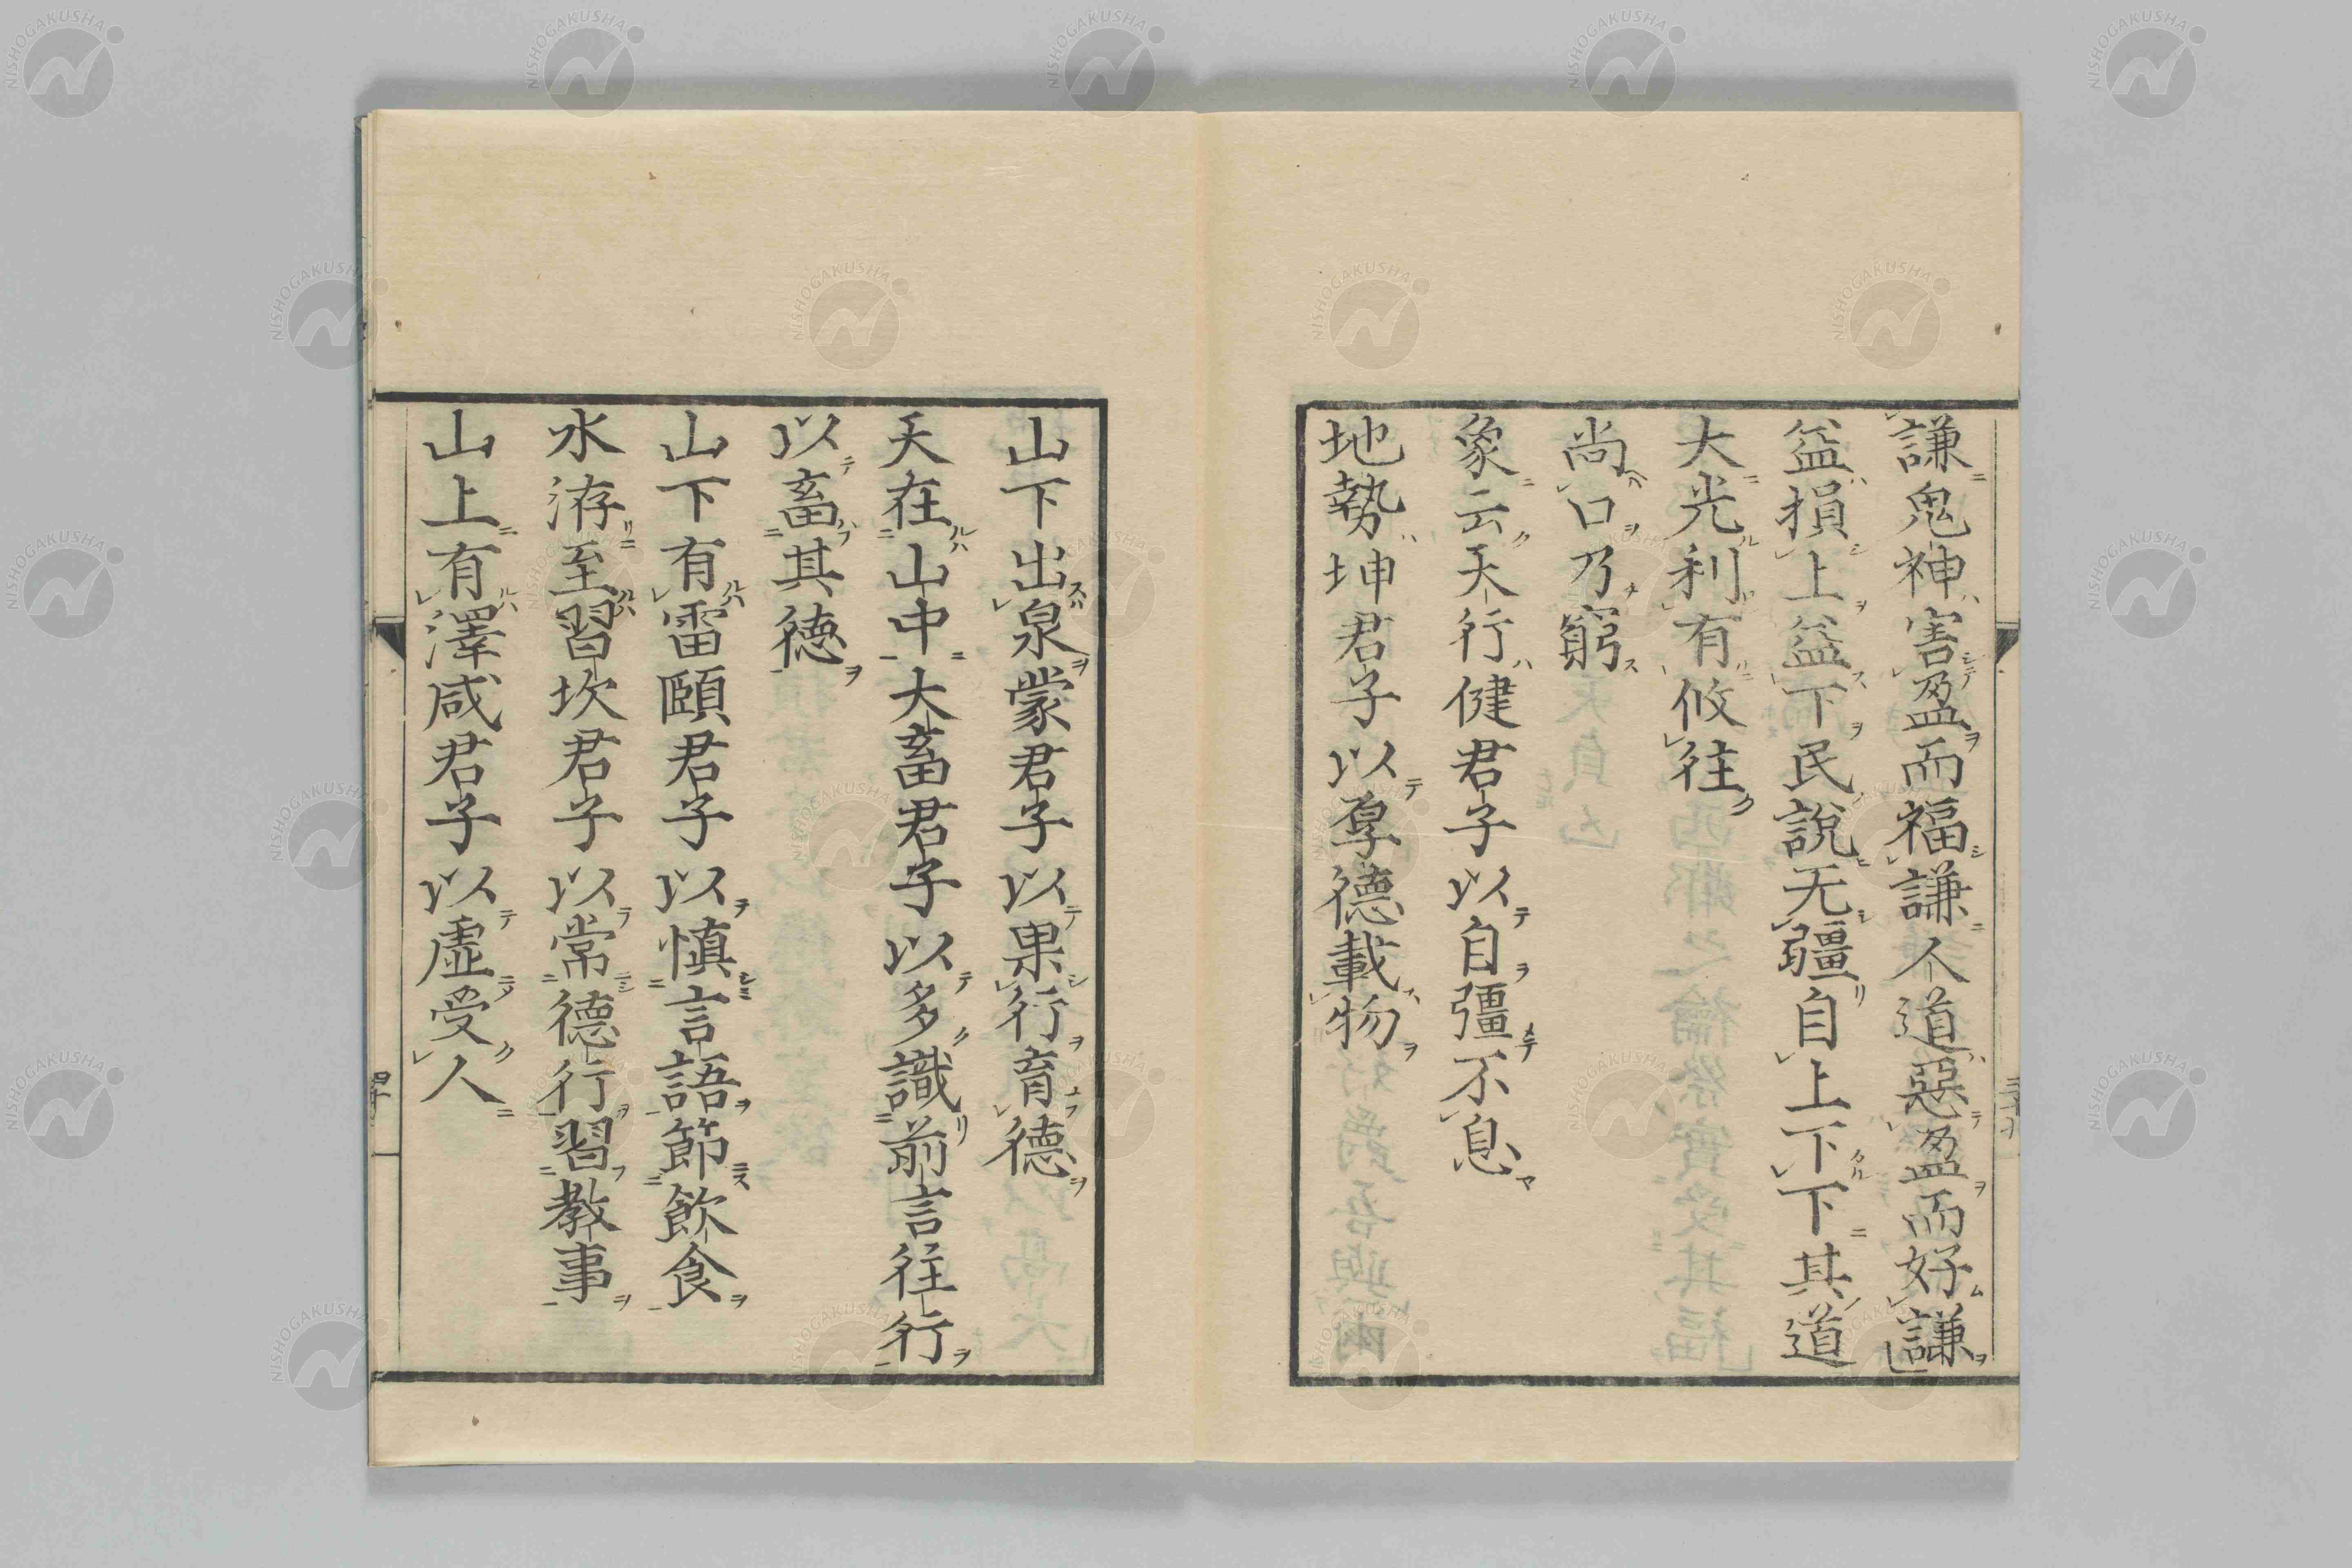 謙鬼神害盈而福謙人道惡盈而好謙
益損上益下民說无疆自上下下其道
大光利有攸往
尚口乃窮
象云天行健君子以自彊不息
地勢坤君子以厚德載物
山下出泉蒙君子以果行育德
天在山中大畜君子以多識前言往行
以畜其德
山下有雷頤君子以慎言語節飲食
水洊至習坎君子以常德行習教事
山上有澤咸君子以虛受人